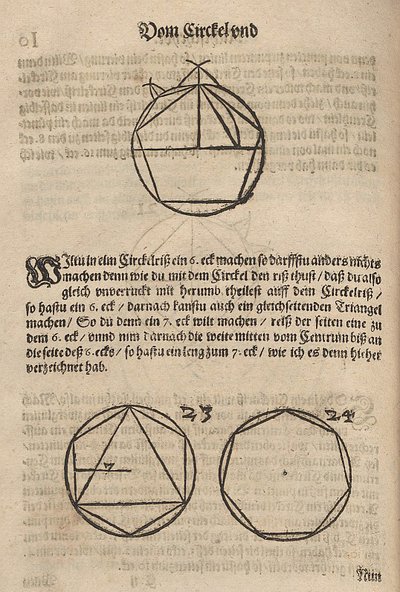 Vom Circkel vnd
Willtu in eim Circkelriß ein 6. eck machen so darffstu anders nichts
machen denn wie du mit dem Circkel den riß thust / daß du also
gleich vnverruckt mit herumb theilest auff dem Circkelriß /
so hastu ein 6. eck / darnach kanstu auch ein gleichseitenden Triangel
machen / So du denn ein 7. eck wilt machen / reiß der seiten eine zu
dem 6. eck / vnnd nim darnach die weite mitten vom Centrum biß an
die seite deß 6. ecks / so hastu ein leng zum 7. eck / wie ich es denn hieher
verzeichnet hab.
23
24
7
Nun